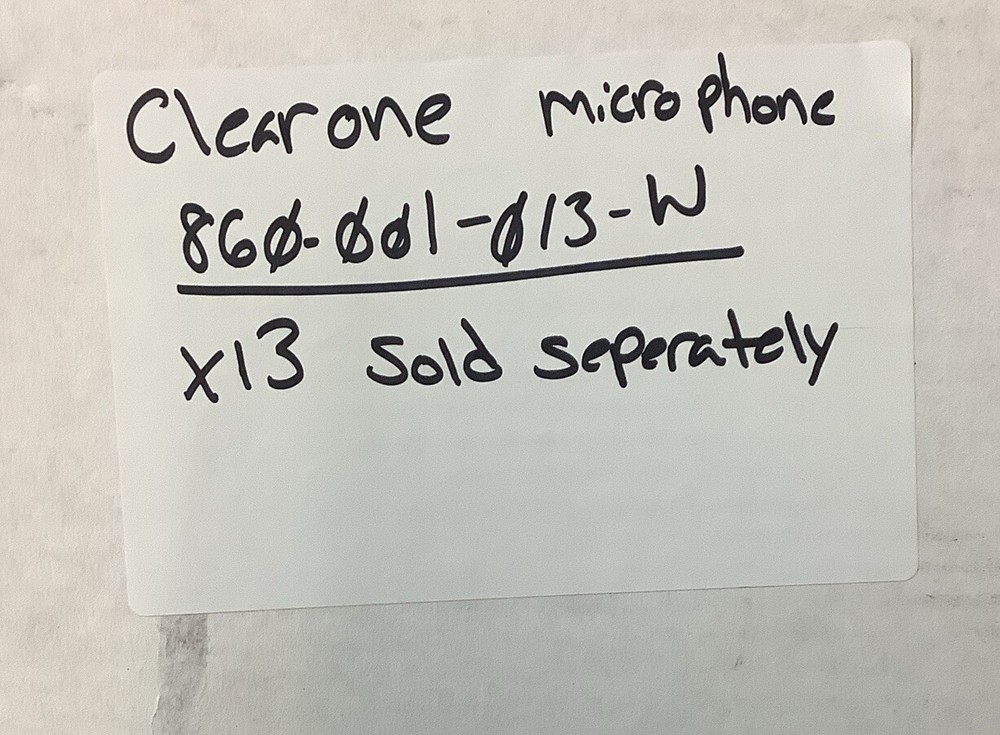 Clearone microphone
860-001-013-W
x13 Sold seperately